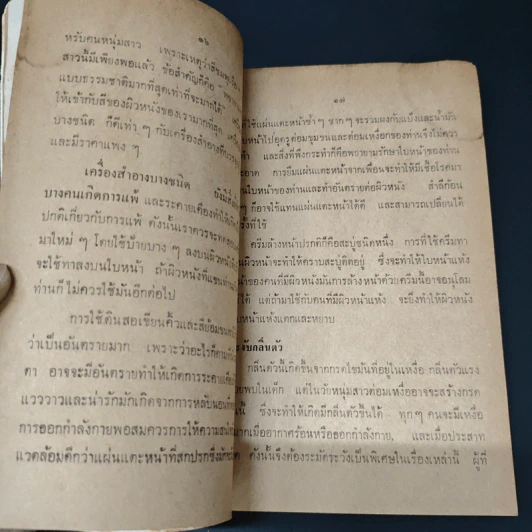 ๑๖
หรับคนหนุ่มสาว เพราะเหตุว่าสีชมพู
สาวนี้มีเพียงพอแล้ว ข้อสำคัญก็คือ
แบบธรรมชาติมากที่สุดเท่าที่จะมากได้
ให้เข้ากับสีของผิวหนังของเรามากที่สุด
บางชนิด ก็ดีเท่า ๆ กับเครื่องสำอางที่
และมีราคาแพง ๆ
เครื่องสำอางบางชนิด
บางคนเกิดการแพ้ และระคายเคืองทำให้
ปกติเกี่ยวกับการแพ้ ดังนั้นเราควรจะทดลอง
มาใหม่ ๆ โดยใช้ป้ายบาง ๆ ลงบนผิวหนัง
จะใช้ทาลงบนใบหน้า ถ้าผิวหนังที่แขน
ท่านก็ไม่ควรใช้มันอีกต่อไป
การใช้ดินสอเขียนคิ้วและสีย้อมขน
ว่าเป็นอันตรายมาก เพราะว่าอะไรก็ตาม
ตา อาจจะมีอันตรายทำให้เกิดการระคาย
แวววาวและน่ารักมักเกิดจากการหลับนอน
การออกกำลังกายพอสมควรการให้ความ
แวดล้อมดีกว่าแผ่นแตะหน้าที่สกปรกซึ่งมัก
๑๗
ที่ใช้แผ่นแตะหน้าซ้ำ ๆ ซาก ๆ จะรวมผงกับแป้งและน้ำมัน
บนหน้าไปอุดรูต่อมขุมขนและต่อมเหงื่อของท่านจึงไม่ควร
ทำ และสิ่งที่พึงกระทำก็คือพยายามรักษาใบหน้าของท่าน
การยืมแผ่นแตะหน้าจากเพื่อนจะทำให้มีเชื้อโรคมา
บนใบหน้าของท่านและทำอันตรายต่อผิวหนัง สำลีก้อน
ๆ ก็อาจใช้แทนแผ่นแตะหน้าได้ดี และสามารถเปลี่ยนได้
ครั้งที่ใช้
ครีมล้างหน้าปรกติก็คือสบู่ชนิดหนึ่ง การที่ใช้ครีมทา
ผิวหน้าจะทำให้คราบสบู่ติดอยู่ ซึ่งจะทำให้ใบหน้าแห้ง
ของคนที่มีผิวหนังมันการล้างหน้าด้วยครีมนี้อาจอนุโลม
ได้ แต่ถ้ามาใช้กับคนที่มีผิวหน้าแห้ง จะยิ่งทำให้ผิวหนัง
ใบหน้าแห้งแตกและหยาบ
ระงับกลิ่นตัว
กลิ่นตัวนี้เกิดขึ้นจากกรดไขมันที่อยู่ในเหงื่อ กลิ่นตัวแรง
พบในเด็ก แต่ในวัยหนุ่มสาวต่อมเหงื่ออาจจะสร้างกรด
นี้ ซึ่งจะทำให้เกิดมีกลิ่นตัวขึ้นได้ ทุกๆ คนจะมีเหงื่อ
มากเมื่ออากาศร้อนหรือออกกำลังกาย, และเมื่อประสาท
ดังนั้นจึงต้องระมัดระวังเป็นพิเศษในเรื่องเหล่านี้ ผู้ที่